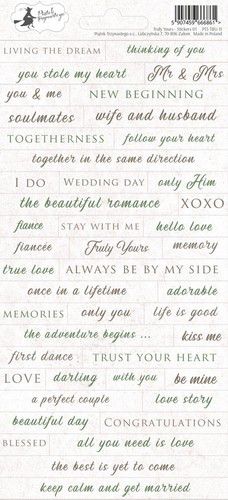 5 907459 666861
Piątek Trzynastego
Truly Yours - Stickers 01 P13-TRU-11
LIVING THE DREAM thinking of you
you stole my heart Mr & Mrs
you & me NEW BEGINNING
soulmates wife and husband
TOGETHERNESS follow your heart
together in the same direction
I DO WEDDING DAY only Him
the beautiful romance XOXO
fiance STAY WITH ME hello love
fiancée Truly Yours memory
true love ALWAYS BE BY MY SIDE
once in a lifetime adorable
MEMORIES only you life is good
the adventure begins ... kiss me
first dance TRUST YOUR HEART
LOVE darling with you be mine
a perfect couple love story
beautiful day CONGRATULATIONS
BLESSED all you need is love
the best is yet to come
keep calm and get married